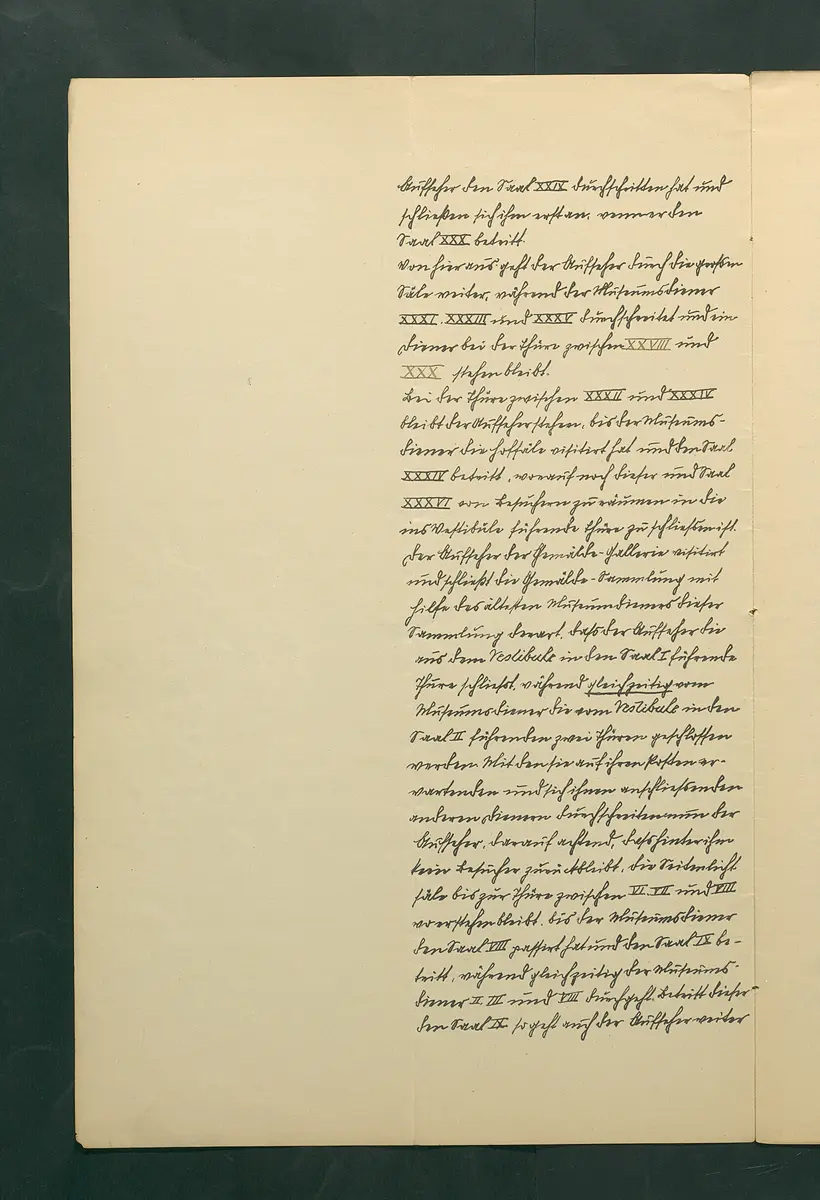 Aufseher den Saal XXIV durchschritten hat und
schließen sich ihm erst an, wenn er den
Saal XXX betritt.
Von hier aus geht der Aufseher durch die großen
Säle weiter, während der Museumsdiener
XXXI, XXXIII und XXXV durchschreitet und ein
Diener bei der Thüre zwischen XXVIII und
XXX stehen bleibt.
Bei der Thüre zwischen XXXII und XXXIV
bleibt der Aufseher stehen, bis der Museums-
diener die Hofsäle visitirt hat und den Saal
XXXIV betritt, worauf noch dieser und Saal
XXXVI von Besuchern zu räumen u die
ins Vestibüle führende Thüre zu schließen ist.
Der Aufseher der Gemälde-Gallerie visitirt
und schließt die Gemälde-Sammlung mit
Hilfe des ältesten Museumdieners dieser
Sammlung derart, dass der Aufseher die
aus dem Vestibule in den Saal I führende
Thüre schliesst, während gleichzeitig vom
Museumsdiener die vom Vestibule in den
Saal II führenden zwei Thüren geschlossen
werden. Mit den sie auf ihren Posten er-
wartenden und sich ihnen anschliessenden
anderen Dienern durchschreiten nun der
Aufseher, darauf achtend, dass hinter ihm
kein Besucher zurückbleibt, die Seitenlicht
säle bis zur Thüre zwischen VI. VII und VIII
wo er stehen bleibt, bis der Museumsdiener
den Saal VIII passirt hat und den Saal IX be-
tritt, während gleichzeitig der Museums-
diener II, III und VIII durchgeht. Betritt dieser
den Saal IX so geht auch der Aufseher weiter